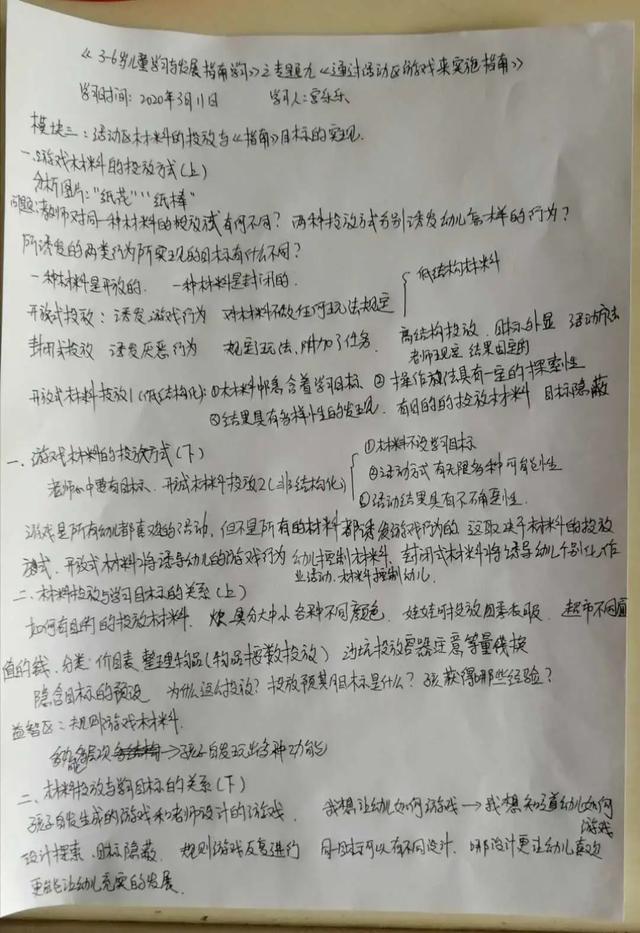 《3-6岁儿童学习与发展指南学习》之专题九《通过活动区游戏来实施指南》
学习时间：2020年3月11日 学习人：宫乐乐
模块三：活动区材料的投放与《指南》目标的实现.
一.游戏材料的投放方式(上)
分析图片："纸花""纸棒"
问题：教师对同一种材料的投放方式有何不同？两种投放方式分别诱发幼儿怎样的行为？
所诱发的两类行为所实现的目标有什么不同？
一种材料是开放的. 一种材料是封闭的.
低结构材料
开放式投放：诱发游戏行为 对材料不做任何玩法规定
高结构投放.目标外显 活动方法
封闭式投放 诱发厌恶行为 规定玩法、附加了任务. 老师规定 结果固定的
开放式材料投放1(低结构化)：①材料中隐含着学习目标 ②操作方法具有一定的探索性
③结果具有多样性的发现. 有目的的投放材料 目标隐蔽
一、游戏材料的投放方式(下)
①材料不设学习目标
老师心中要有目标. 开放式材料投放2(非结构化) ②活动方式有无限多种可能性
③活动结果具有不确定性.
游戏是所有幼儿都喜欢的活动，但不是所有的材料都诱发游戏行为的.这取决于材料的投放
方式、开放式材料将诱导幼儿的游戏行为 幼儿控制材料. 封闭式材料将诱导幼儿个别化作
业活动.材料控制幼儿.
二、材料投放与学习目标的关系(上)
如何有目的的投放材料. 炊具分大中小各种不同颜色. 娃娃可投放四季衣服. 超市不同面
值的钱、分类 价目表、整理物品(物品按数投放) 沙坑投放容器注意等量代换
隐含目标的预设 为什么这么投放？投放预其目标是什么？孩获得哪些经验？
益智区：规则游戏材料.
多层次 →孩子自发玩出各种功能
二、材料投放与学习目标的关系(下)
孩子自发生成的游戏和老师设计的游戏. 我想让幼儿如何游戏→我想知道幼儿如何
游戏
设计探索.目标隐蔽. 规则游戏反复进行 同一目标可以有不同设计. 哪设计更让幼儿喜欢
更能让幼儿充实的发展.